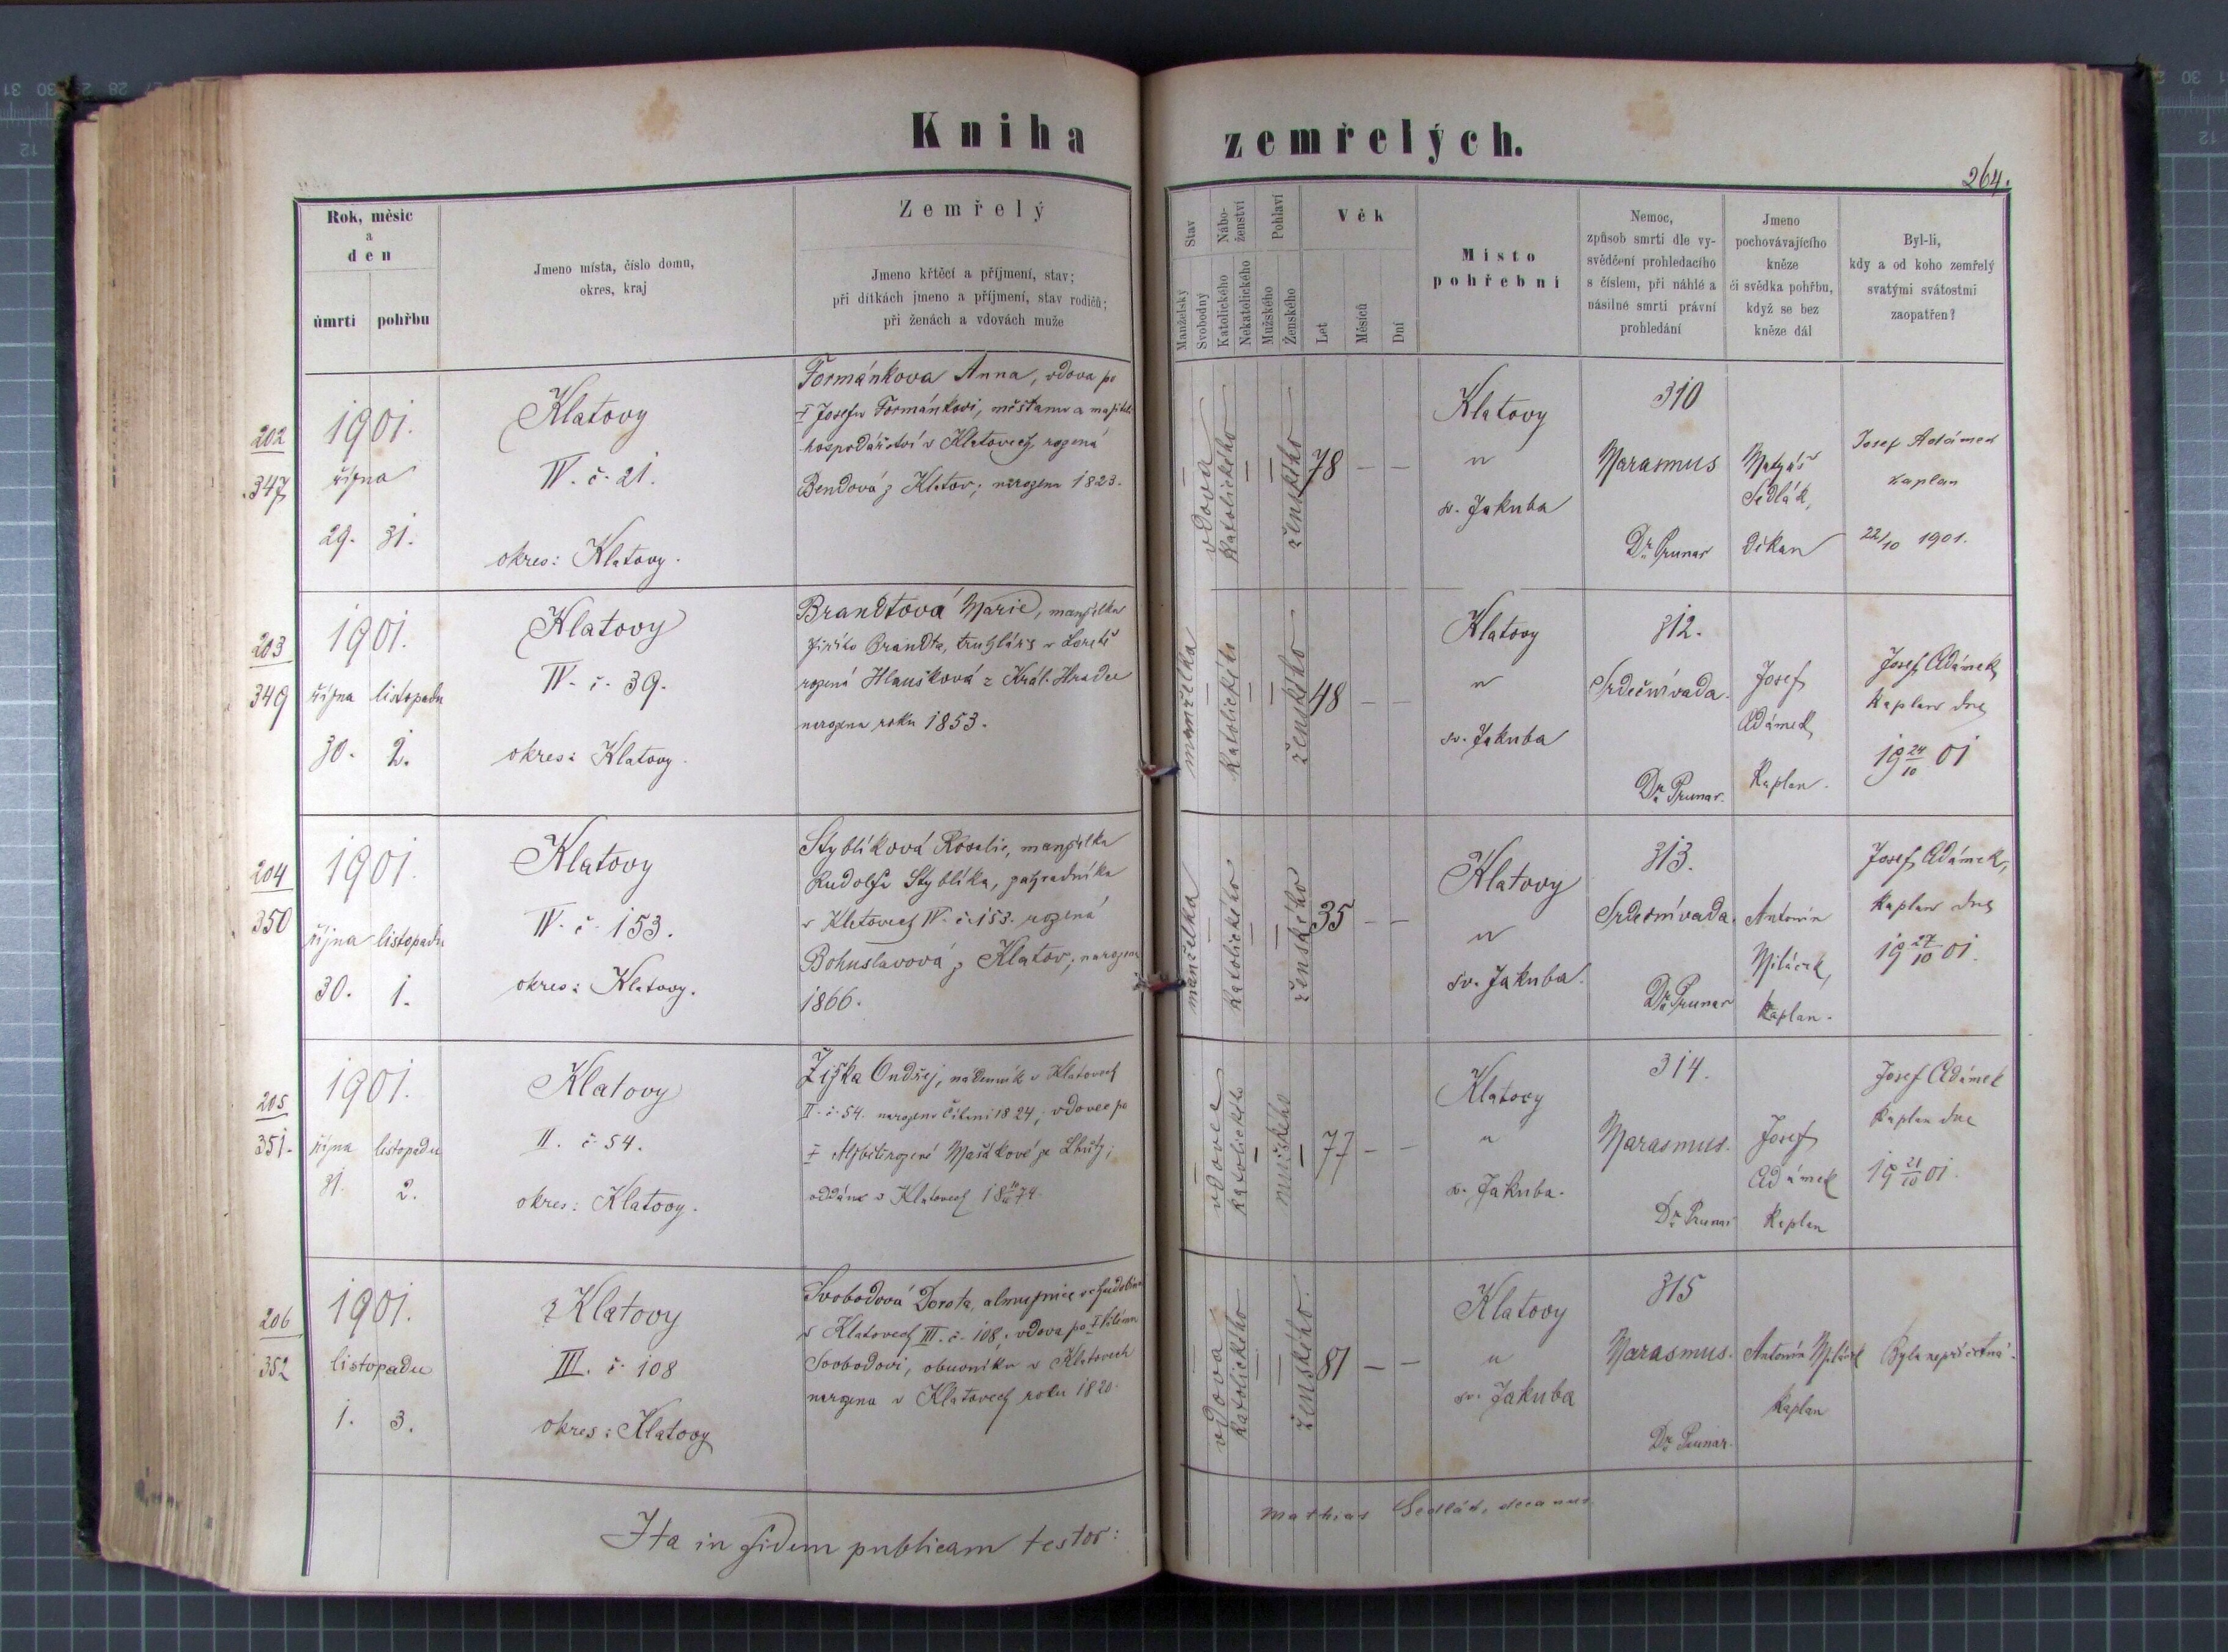 Kniha zemřelých.
264.
Rok, měsíc
a
den
úmrtí pohřbu
Jmeno místa, číslo domu,
okres, kraj
Zemřelý
Jmeno křtěcí a příjmení, stav;
při dítkách jmeno a příjmení, stav rodičů;
při ženách a vdovách muže
Stav
Manželský
Svobodný
Nábo-
ženství
Katolického
Nekatolického
Pohlaví
Mužského
Ženského
Věk
Let
Měsíců
Dní
Místo
pohřební
Nemoc,
způsob smrti dle vy-
svědčení prohledacího
s číslem, při náhlé a
násilné smrti právní
prohledání
Jmeno
pochovávajícího
kněze
či svědka pohřbu,
když se bez
kněze dál
Byl-li,
kdy a od koho zemřelý
svatými svátostmi
zaopatřen?
202
347
1901.
října
29. 31.
Klatovy
IV. č. 21.
okres: Klatovy.
Formánkova Anna, vdova po
† Josefu Formánkovi, měšťanu a
hospodářství v Klatovech, rozená
Bendová z Klatov; narozena 1823.
vdova
Katolického
ženského
78 — —
Klatovy
u
sv. Jakuba
310
Marasmus
Dr. Prunar
Matyáš
Sedlák,
děkan
Josef Adámek
kaplan
22/10 1901.
203
349
1901.
října listopadu
30. 2.
Klatovy
IV. č. 39.
okres: Klatovy.
Brandtová Marie, manželka
Jiřího Brandta, truhláře v
rozená Hlaušková z Král. Hradce
narozena roku 1853.
manželka
Katolického
ženského
48 — —
Klatovy
u
sv. Jakuba
312.
Srdeční vada.
Dr. Prunar.
Josef
Adámek,
Kaplan.
Josef Adámek,
Kaplan dne
19 24/10 01
204
350
1901.
října listopadu
30. 1.
Klatovy
IV. č. 153.
okres: Klatovy.
Styblíková Rosalie, manželka
Rudolfa Styblíka, zahradníka
v Klatovech IV. č. 153. rozená
Bohuslavová z Klatov; narozena
1866.
manželka
Katolického
ženského
35 — —
Klatovy
u
sv. Jakuba.
313.
Srdeční vada.
Dr. Prunar
Antonín
Miláček,
Kaplan.
Josef Adámek,
Kaplan dne
19 27/10 01.
205
351.
1901.
října listopadu
31. 2.
Klatovy
II. č. 54.
okres: Klatovy.
Žižka Ondřej, nádenník v Klatovech
II. č. 54. narozen 1824; vdovec po
† Alžbětě rozené Maškové ze Lhuty;
oddán v Klatovech
vdovec
Katolického
mužského
77 — —
Klatovy
u
sv. Jakuba.
314.
Marasmus.
Dr. Prunar
Josef
Adámek
Kaplan
Josef Adámek
Kaplan dne
19 21/10 01.
206
352
1901.
listopadu
1. 3.
z Klatovy
III. č. 108
okres: Klatovy
Svobodová Dorota, almužnice v chudobinci
v Klatovech III. č. 108; vdova po †
Svobodovi, obuvníku v Klatovech
narozena v Klatovech roku 1820.
vdova
Katolického
ženského.
81 — —
Klatovy
u
sv. Jakuba
315
Marasmus.
Dr. Prunar.
Antonín Miláček
Kaplan
Byla nepříčetná.
Ita in fidem publicam testor:
Mathias Sedlák, decanus.